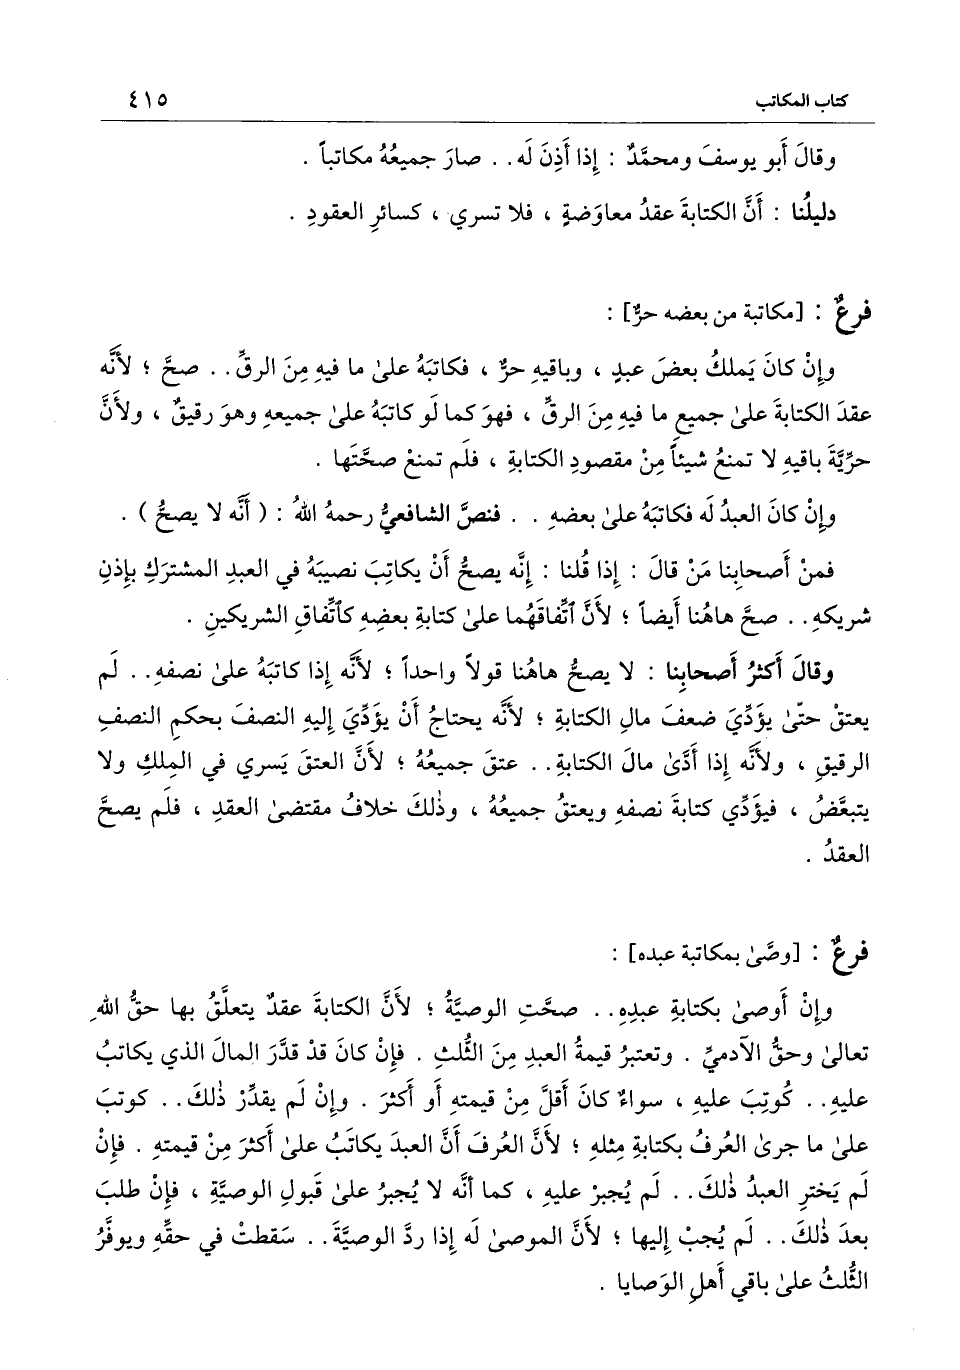 كتاب المكاتب ٤١٥
وقالَ أَبو يوسفَ ومحمَّدٌ : إِذا أَذِنَ لَه . . صارَ جميعُهُ مكاتباً .
دليلُنا : أَنَّ الكتابةَ عقدُ معاوَضةٍ ، فلا تسري ، كسائرِ العقودِ .
فرعٌ : [مكاتبة من بعضه حرٌّ] :
وإِنْ كانَ يَملكُ بعضَ عبدٍ ، وباقيهِ حرٌّ ، فكاتبَهُ علىٰ ما فيهِ مِنَ الرقِّ . . صحَّ ؛ لأَنَّه
عقدَ الكتابةَ علىٰ جميعِ ما فيهِ مِنَ الرقِّ ، فهوَ كما لَو كاتبَهُ علىٰ جميعهِ وهوَ رقيقٌ ، ولأَنَّ
حرِّيَّةَ باقيهِ لا تمنعُ شيئاً مِنْ مقصودِ الكتابةِ ، فلَم تمنعْ صحَّتَها .
وإِنْ كانَ العبدُ لَه فكاتبَهُ علىٰ بعضهِ . . فنصَّ الشافعيُّ رحمهُ اللهُ : ( أَنَّه لا يصحُّ ) .
فمنْ أَصحابِنا مَنْ قالَ : إِذا قُلنا : إِنَّه يصحُّ أَنْ يكاتِبَ نصيبَهُ في العبدِ المشتركِ بإِذنِ
شريكهِ . . صحَّ هاهُنا أَيضاً ؛ لأَنَّ ٱتِّفاقَهُما علىٰ كتابةِ بعضِهِ كٱتِّفاقِ الشريكينِ .
وقالَ أَكثرُ أَصحابِنا : لا يصحُّ هاهُنا قولاً واحداً ؛ لأَنَّه إِذا كاتبَهُ علىٰ نصفهِ . . لَم
يعتقْ حتّىٰ يؤَدِّيَ ضعفَ مالِ الكتابةِ ؛ لأَنَّه يحتاجُ أَنْ يؤَدِّيَ إِليهِ النصفَ بحكمِ النصفِ
الرقيقِ ، ولأَنَّه إِذا أَدَّىٰ مالَ الكتابةِ . . عتقَ جميعُهُ ؛ لأَنَّ العتقَ يَسري في المِلكِ ولا
يتبعَّضُ ، فيؤَدِّي كتابةَ نصفهِ ويعتقُ جميعُهُ ، وذٰلكَ خلافُ مقتضىٰ العقدِ ، فلَم يصحَّ
العقدُ .
فرعٌ : [وصَّىٰ بمكاتبة عبده] :
وإِنْ أَوصىٰ بكتابةِ عبدِهِ . . صحَّتِ الوصيَّةُ ؛ لأَنَّ الكتابةَ عقدٌ يتعلَّقُ بها حقُّ اللهِ
تعالىٰ وحقُّ الآدميِّ . وتعتبرُ قيمةُ العبدِ مِنَ الثُّلثِ . فإِنْ كانَ قدْ قدَّرَ المالَ الذي يكاتبُ
عليهِ . . كُوتِبَ عليهِ ، سواءٌ كانَ أَقلَّ مِنْ قيمتهِ أَو أَكثرَ . وإِنْ لَم يقدِّرْ ذٰلكَ . . كوتبَ
علىٰ ما جرىٰ العُرفُ بكتابةِ مِثلهِ ؛ لأَنَّ العُرفَ أَنَّ العبدَ يكاتَبُ علىٰ أَكثرَ مِنْ قيمتهِ . فإِنْ
لَم يَخترِ العبدُ ذٰلكَ . . لَم يُجبرْ عليهِ ، كما أَنَّه لا يُجبرُ علىٰ قَبولِ الوصيَّةِ ، فإِنْ طلبَ
بعدَ ذٰلكَ . . لَم يُجبْ إِليها ؛ لأَنَّ الموصىٰ لَه إِذا ردَّ الوصيَّةَ . . سَقطتْ في حقِّهِ ويوفَّرُ
الثُّلثُ علىٰ باقي أَهلِ الوَصايا .